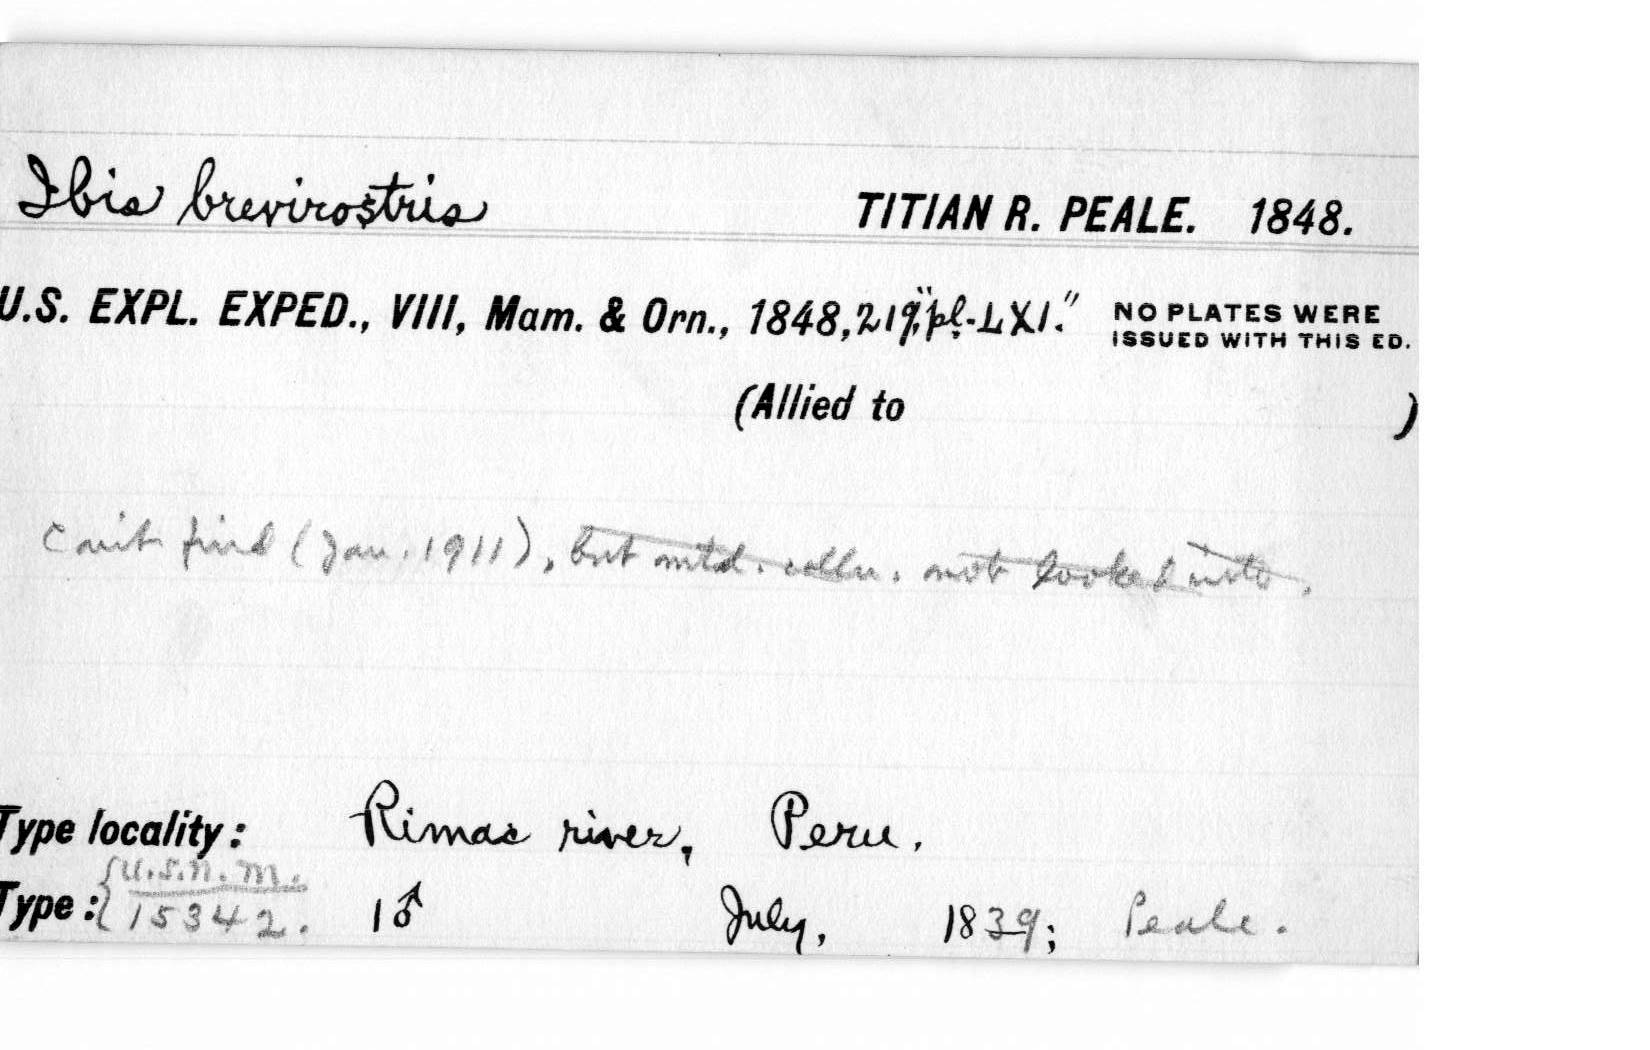 Ibis brevirostris TITIAN R. PEALE. 1848.
U.S. EXPL. EXPED., VIII, Mam. & Orn., 1848, 219, "pl. LXI." NO PLATES WERE
ISSUED WITH THIS ED.
(Allied to )
Can't find (Jan. 1911), but mtd. colln. not looked into.
Type locality: Rimac river, Peru.
Type: { U.S.N.M.
15342. 1♂ July, 1839; Peale.